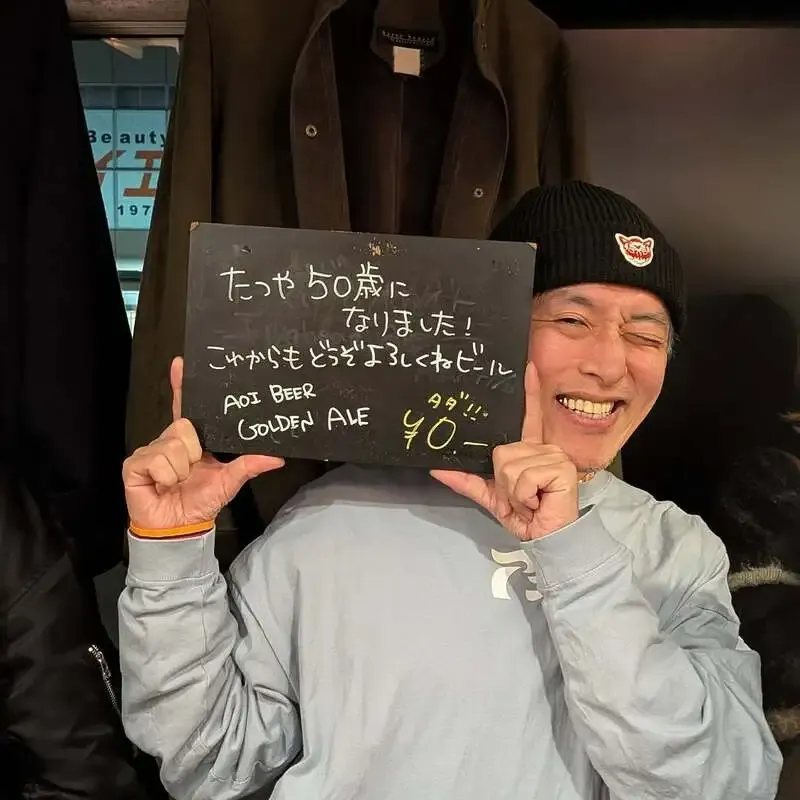 Beauty
197
たつや 50歳に
なりました!
これからもどうぞよろしくねビール
AOI BEER
GOLDEN ALE
タダ!!
¥0.—